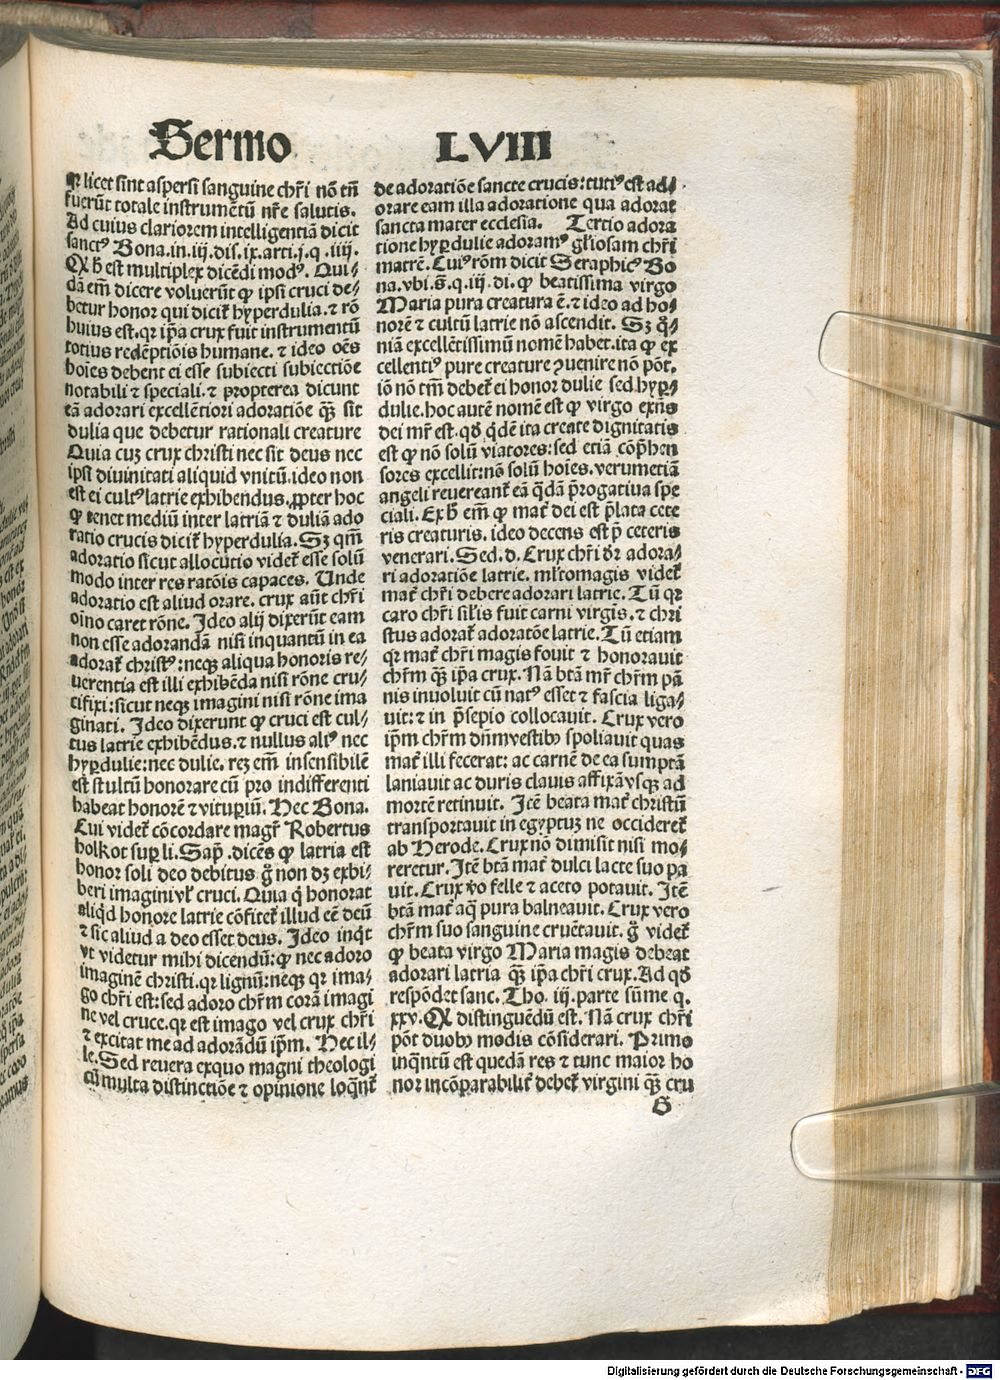 Sermo LVIII
qr licet sint aspersi sanguine chr̄i nō tn̄
fuerūt totale instrumētū nr̄e salutis.
Ad cuius clariorem intelligentiā dicit
sanctꝰ Bona.in.iij.dis.ix.arti.j.q.iiij.
Ꝙ h̄ est multiplex dicēdi modꝰ. Qui⸗
dā em̄ dicere voluerūt ꝙ ipsi cruci de⸗
betur honor qui dicit᷑ hyperdulia.⁊ rō
huius est.qr ip̄a crux fuit instrumentū
totius redēptiōis humane.⁊ ideo oēs
hoīes debent ei esse subiecti subiectiōe
notabili ⁊ speciali.⁊ propterea dicunt
eā adorari excellētiori adoratiōe qȝ̄ sit
dulia que debetur rationali creature
Quia cuȝ crux christi nec sit deus nec
ipsi diuinitati aliquid vnitū.ideo non
est ei cultꝰ latrie exhibendus.ꝓpter hoc
ꝙ tenet mediū inter latriā ⁊ duliā ado
ratio crucis dicit᷑ hyperdulia.Sȝ qm̄
adoratio sicut allocutio videt᷑ esse solū
modo inter res ratōis capaces. Unde
adoratio est aliud orare. crux aūt chr̄i
oīno caret rōne. Ideo alij dixerūt eam
non esse adorandā nisi inquantū in ea
adorat᷑ christꝰ:neqȝ aliqua honoris re⸗
uerentia est illi exhibēda nisi rōne cru⸗
cifixi:sicut neqȝ imagini nisi rōne ima
ginati. Ideo dixerunt ꝙ cruci est cul⸗
tus latrie exhibēdus.⁊ nullus aliꝰ nec
hyꝑdulie:nec dulie. reȝ em̄ insensibilē
est stultū honorare cū pro indifferenti
habeat honorē ⁊ vituꝑiū. Hec Bona.
Cui videt᷑ cōcordare magr̄ Robertus
holkot suꝑ li.Sap̄ .dicēs ꝙ latria est
honor soli deo debitus g̊ non dȝ exhi⸗
beri imagini vl᷑ cruci. Quia q̇ honorat
aliqd honore latrie cōfitet᷑ illud eē deū
⁊ sic aliud a deo esset deus. Ideo inqt
vt videtur mihi dicendū:ꝙ nec adoro
imaginē christi.qr lignū:neqȝ qr ima⸗
go chr̄i est:sed adoro chr̄m corā imagi
ne vel cruce.qr est imago vel crux chr̄i
⁊ excitat me ad adorādū ip̄m. Hec il⸗
le.Sed reuera exquo magni theologi
cū multa distinctiōe ⁊ opinione loqn̄t᷑
de adoratiōe sancte crucis:tutiꝰ est ad⸗
orare eam illa adoratione qua adorat
sancta mater ecclesia. Tertio adora
tione hyꝑdulie adoramꝰ gl̄iosam chr̄i
matrē.Cuiꝰ rōm dicit Seraphicꝰ Bo
na.vbi.s̄.q.iij.di.ꝙ beatissima virgo
Maria pura creatura ē.⁊ ideo ad ho⸗
norē ⁊ cultū latrie nō ascendit. Sȝ q̄⸗
niā excellētissimū nomē habet.ita ꝙ ex
cellentiꝰ pure creature ꝯuenire nō pōt.
iō nō tm̄ debet᷑ ei honor dulie sed hyꝑ⸗
dulie.hoc autē nomē est ꝙ virgo exn̄s
dei mr̄ est.qd̓ qdē ita create dignitatis
est ꝙ nō solū viatores:sed etiā cōp̄hen
sores excellit:nō solū hoīes.verumetiā
angeli reuereant᷑ eā qdā p̄rogatiua spe
ciali. Ex h̄ em̄ ꝙ mat᷑ dei est p̄lata cete
ris creaturis. ideo decens est p̄ ceteris
venerari. Sed.d. Crux chr̄i dr̄ adora⸗
ri adoratiōe latrie. ml̓tomagis videt᷑
mat᷑ chr̄i debere adorari latrie. Tū qr
caro chr̄i sil̓is fuit carni virgis.⁊ chri
stus adorat᷑ adoratōe latrie.Tū etiam
qr mat᷑ chr̄i magis fouit ⁊ honorauit
chr̄m qȝ̄ ip̄a crux. Nā btā mr̄ chr̄m pā
nis inuoluit cū natꝰ esset ⁊ fascia liga⸗
uit:⁊ in p̄sepio collocauit. Crux vero
ip̄m chr̄m dn̄m vestibꝰ spoliauit quas
mat᷑ illi fecerat: ac carnē de ea sumptā
laniauit ac duris clauis affixā vsqȝ ad
mortē retinuit. Itē beata mat᷑ christū
transportauit in egyptuȝ ne occideret᷑
ab Herode. Crux nō dimisit nisi mo⸗
reretur. Itē btā mat᷑ dulci lacte suo pa
uit. Crux v̊o felle ⁊ aceto potauit. Itē
btā mat᷑ aq̄ pura balneauit. Crux vero
chr̄m suo sanguine cruētauit. g̊ videt᷑
ꝙ beata virgo Maria magis debeat
adorari latria qȝ̄ ip̄a chr̄i crux. Ad qd̓
respōdet sanc. Tho. iij. parte sūme q.
xxv. Ꝙ distinguēdū est. Nā crux chr̄i
pōt duobꝰ modis cōsiderari. Primo
inqn̄tū est quedā res ⁊ tunc maior ho
nor incōparabilit᷑ debet᷑ virgini qȝ̄ cru
Digitalisierung gefördert durch die Deutsche Forschungsgemeinschaft - DFG